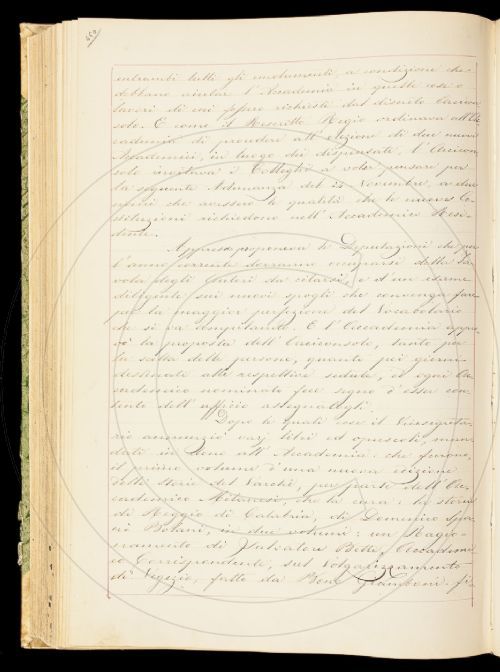 460
entrambi tutti gli emolumenti, a condizione che
debbano aiutar l'Accademia in quelle cose o
lavori di cui fossero richiesti dal discreto Arcicon
solo. E come il Rescritto Regio ordinava all'Ac
cademia di procedere all'elezione di due nuovi
Accademici, in luogo dei dispensati, l'Arcicon
solo invitava i Colleghi a voler pensare per
la seguente Adunanza del 24 Novembre, a due
che avessero le qualità che le nuove Co
stituzioni richiedono nell'Accademico Resi
dente.
Appresso proponeva le Deputazioni che per
l'anno corrente dovranno occuparsi della Ta
vola degli Autori da citarsi, e d'un esame
diligente sui nuovi spogli che convenga fare
per la maggior perfezione del Vocabolario
che si va compilando. E l'Accademia appro
vò la proposta dell'Arciconsolo, tanto per
la scelta delle persone, quanto pei giorni
destinati alle respettive sedute, ed ogni Ac
cademico nominato fece segno d'esser con
tento dell'ufficio assegnatogli.
Dopo le quali cose il Vicesegreta
rio annunziò varj libri ed opuscoli, man
dati in dono all'Accademia: che furono,
il primo volume d'una nuova edizione
delle Storie del Varchi, per parte dell'Ac
cademico Milanesi, che la cura; la storia
di Reggio di Calabria, di Domenico
Bolani, in due volumi; un Ragio
namento di Salvatore Betti, Accademi
co Corrispondente, sul Volgarizzamento
di Vegezio, fatto da Bono Giamboni;